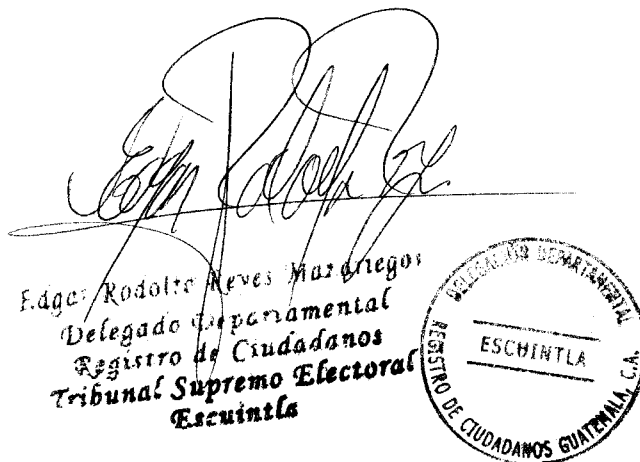 Edgar Rodolfo Reyes Mazariegos
Delegado Departamental
Registro de Ciudadanos
Tribunal Supremo Electoral
Escuintla
DELEGACION DEPARTAMENTAL
ESCUINTLA
REGISTRO DE CIUDADANOS GUATEMALA, C.A.